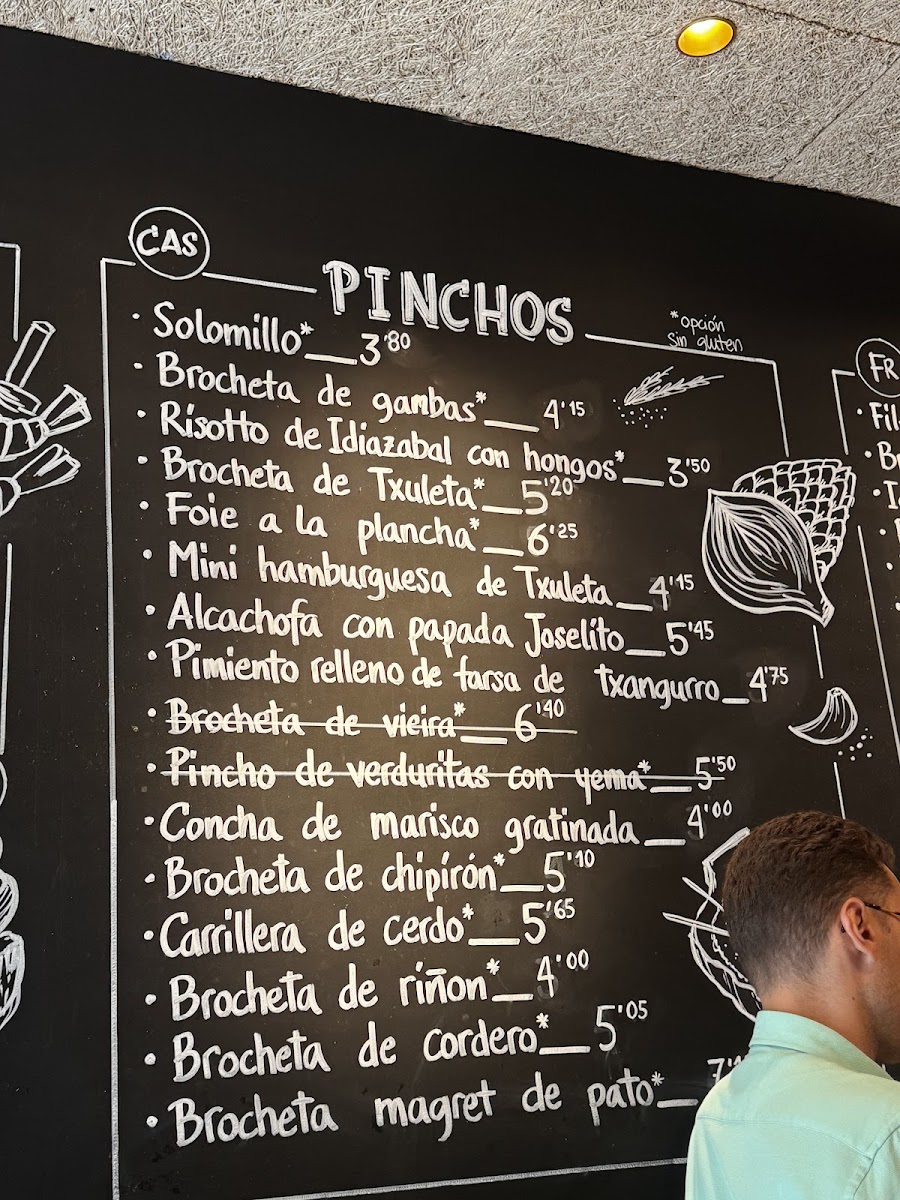 CAS
PINCHOS
*opción
sin gluten
· Solomillo*__3'80
· Brocheta de gambas*__4'15
· Risotto de Idiazabal con hongos*__3'50
· Brocheta de Txuleta*__5'20
· Foie a la plancha*__6'25
· Mini hamburguesa de Txuleta__4'45
· Alcachofa con papada Joselito__5'45
· Pimiento relleno de farsa de txangurro__4'75
· Brocheta de vieira*__6'40
· Pincho de verduritas con yema*__5'50
· Concha de marisco gratinada__4'00
· Brocheta de chipirón*__5'10
· Carrillera de cerdo*__5'65
· Brocheta de riñon*__4'00
· Brocheta de cordero*__5'05
· Brocheta magret de pato*__
FR